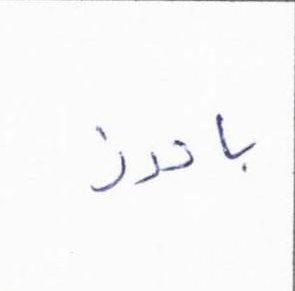 باخرز